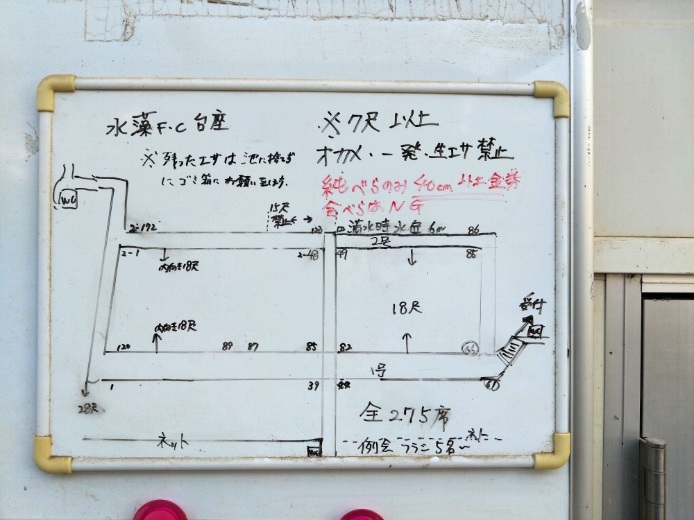 水藻F.C 台座
※ 7尺 以上
オカメ、一発、生エサ 禁止
※ 残ったエサは池に捨てず
にゴミ箱にお願い致します。
純べらのみ 40cm 以上
合べらはNG
WC
15尺
禁止
満水時水位 6m
2-192
86
2号
2-1
内向き18尺
2-48
49
85
18尺
受付
内向き18尺
120
89
87
85
82
1号
1
39
28尺
全 275席
ネット
ネット
例会 プラン 5名〜